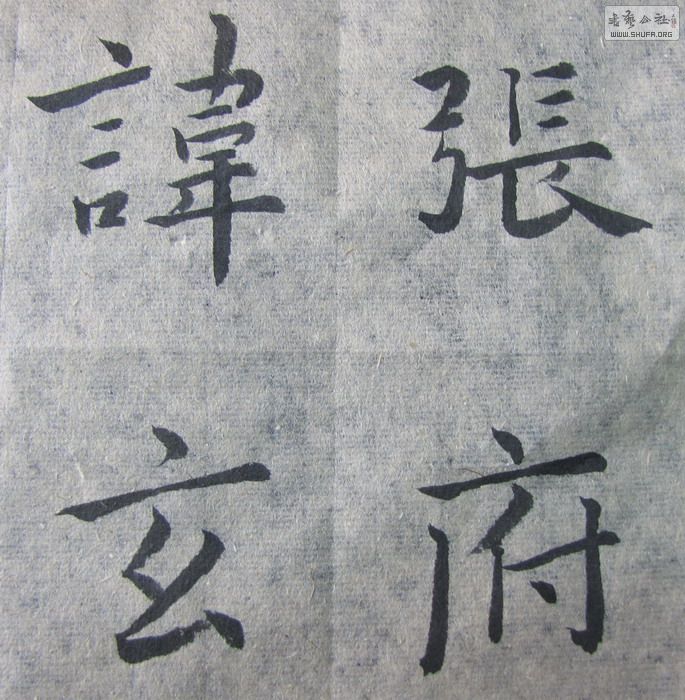 張府
諱玄
书艺公社
WWW.SHUFA.ORG